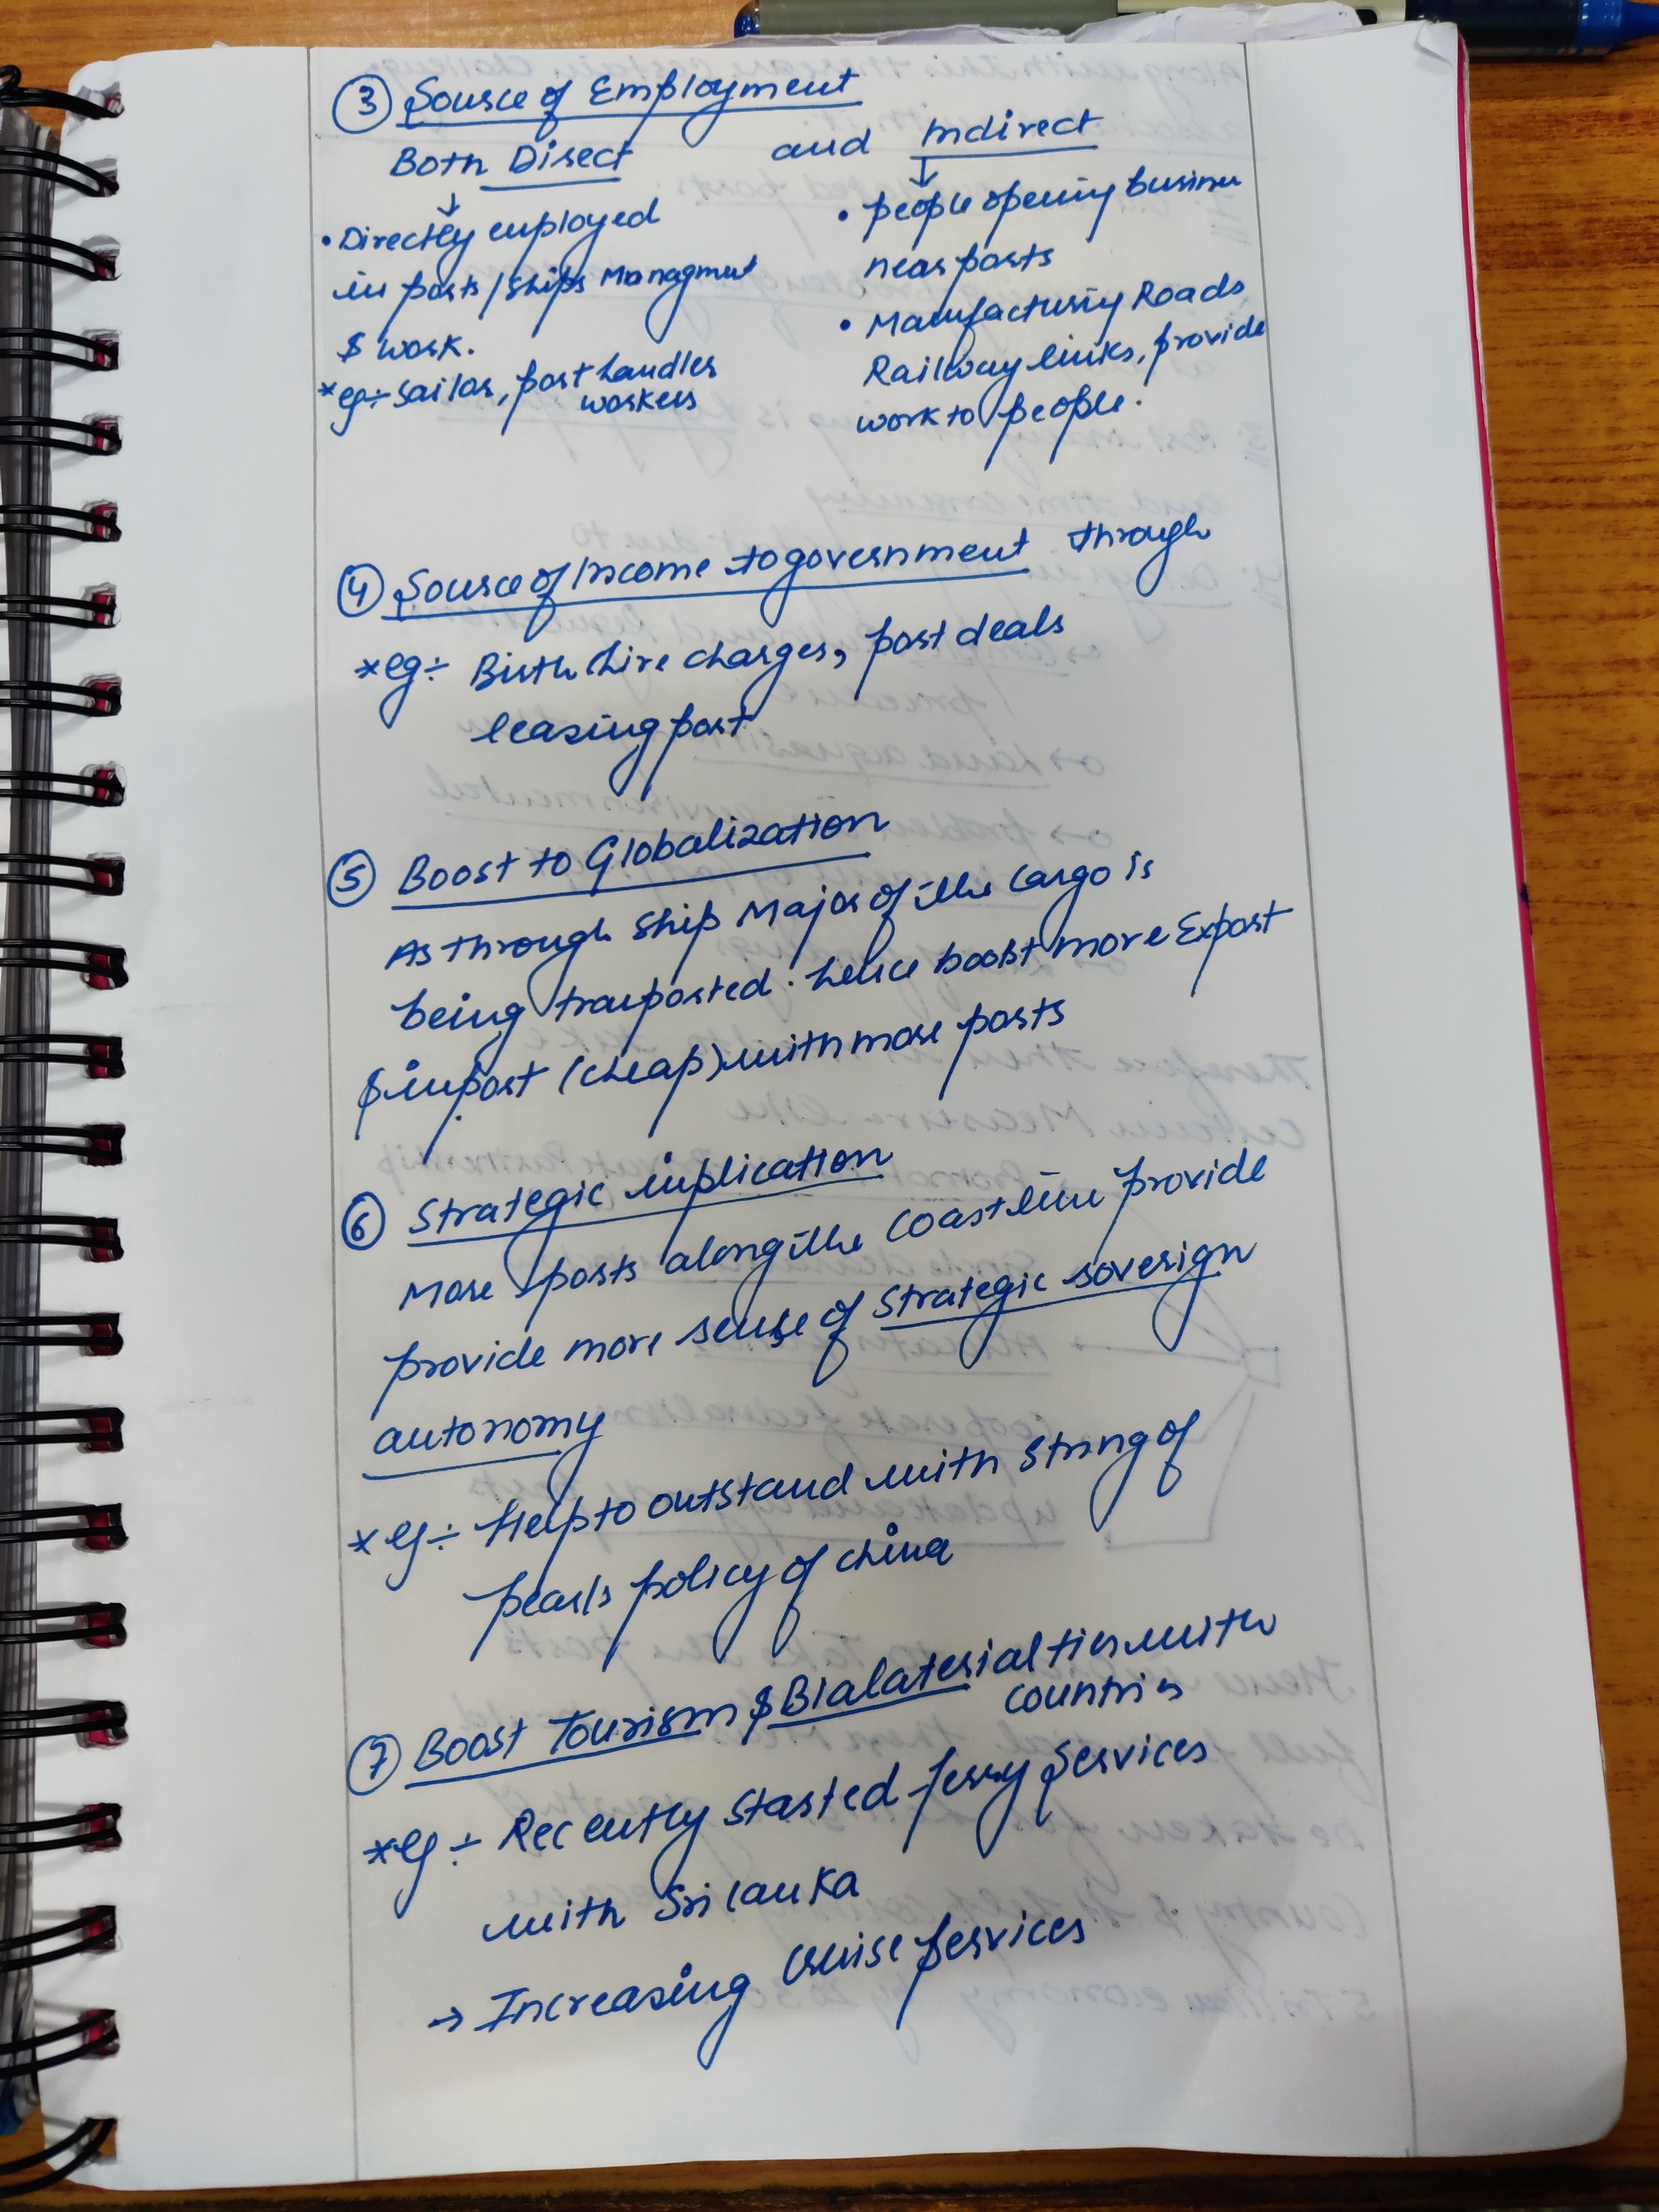 ③ Source of Employment
Both Direct and Indirect
↓ ↓
• Directly employed
in ports / ships Managment
& work.
* eg ÷ sailor, port handler
workers
• people opening busines
near ports
• Manufacturing Roads
Railway links, provide
work to people.
④ Source of Income to government through
* eg ÷ Birth hire charges, port deals
leasing port
⑤ Boost to Globalization
As through ship Major of the cargo is
being tranported. hence boost more Export
& import (cheap) with more ports
⑥ Strategic implication
More ports along the coastline provide
provide more sense of strategic soverign
autonomy
* eg ÷ Help to outstand with string of
pearls policy of china
⑦ Boost Tourism & Bialaterial ties with
countries
* eg ÷ Recently started ferry services
with Sri lanka
→ Increasing cruise services